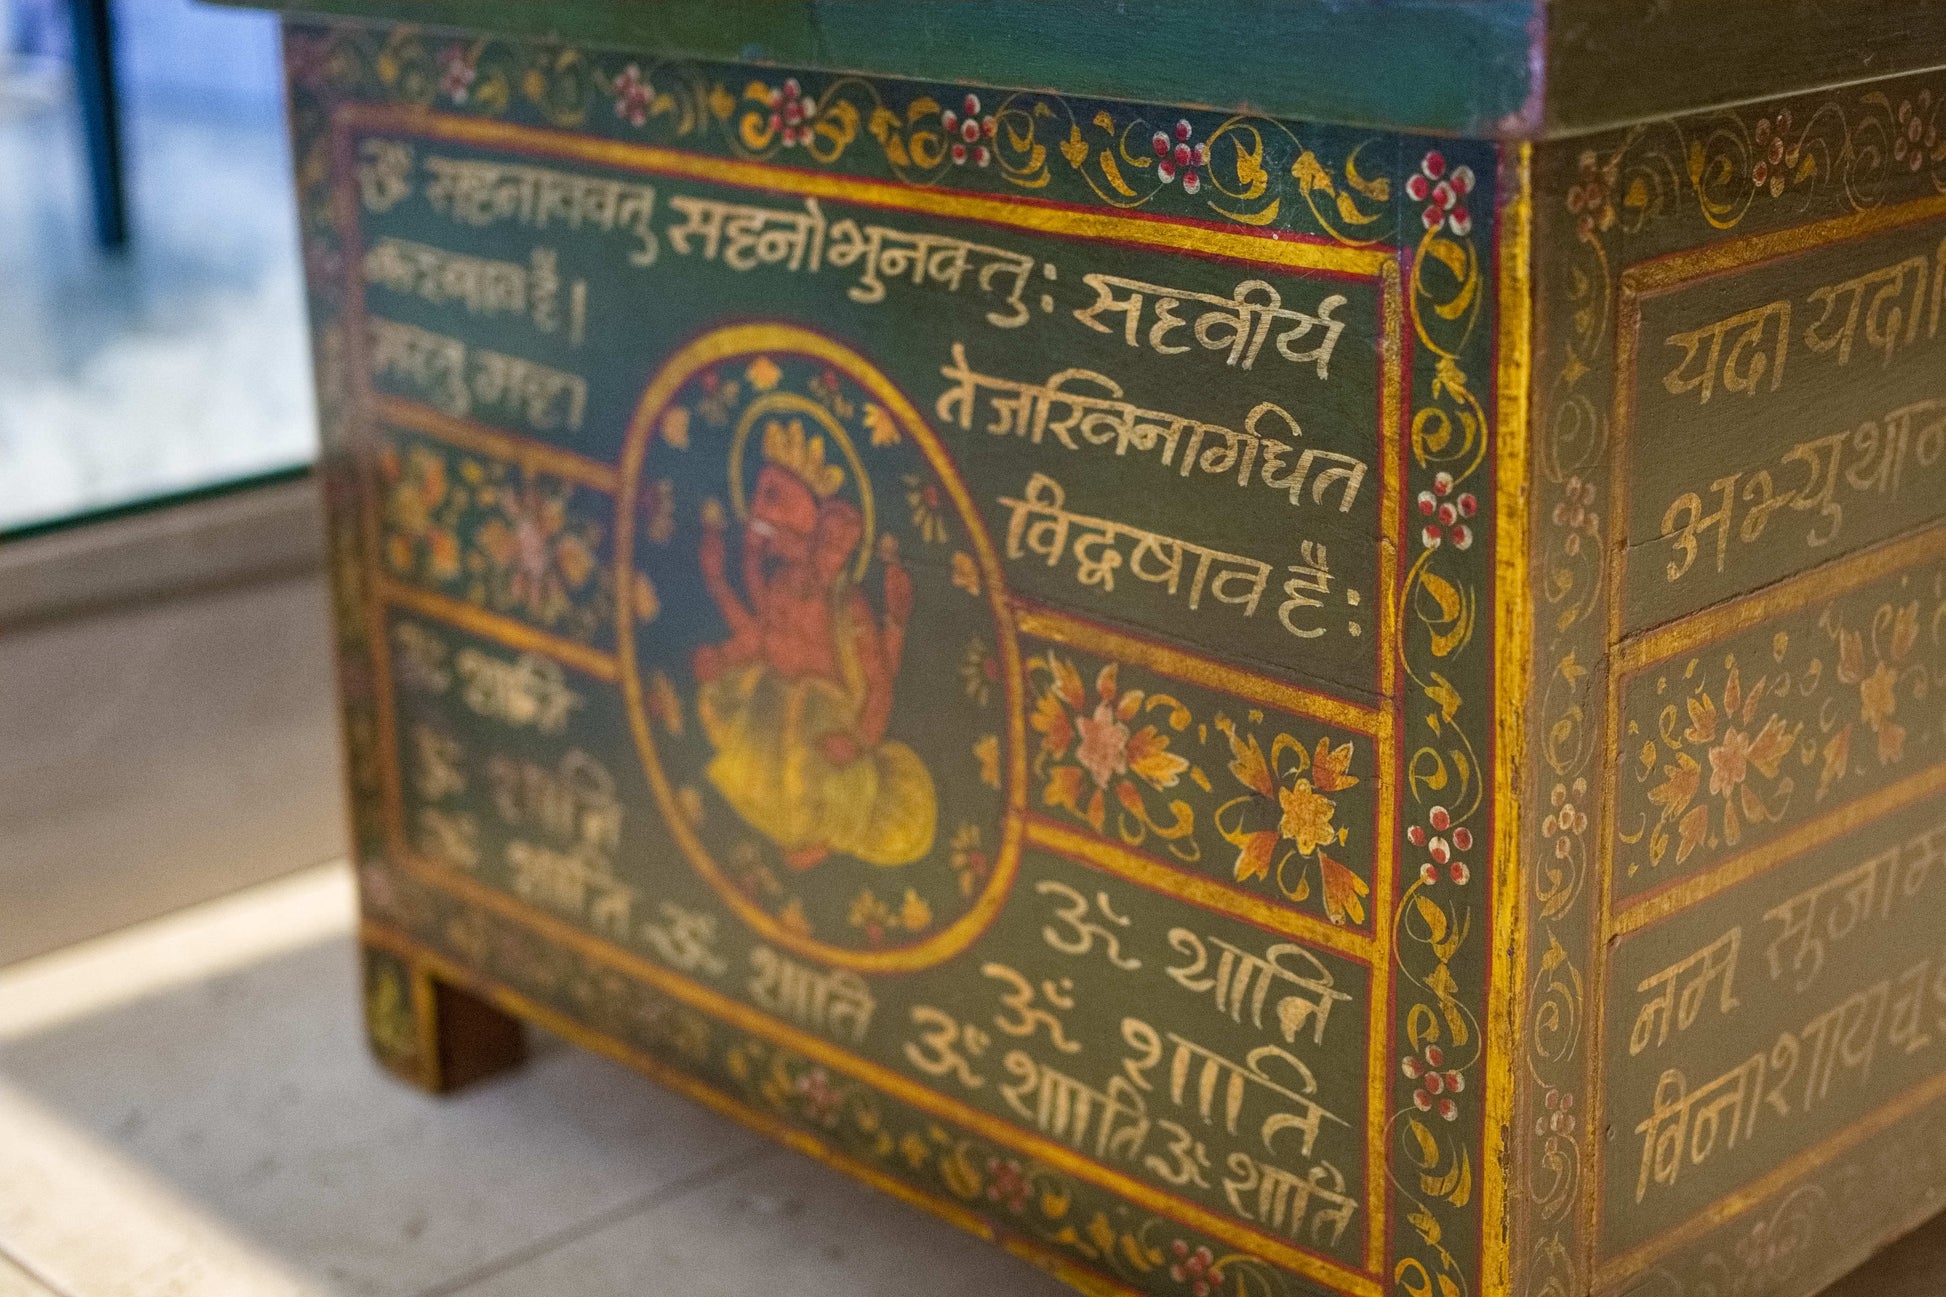 ॐ सहनाववतु सहनोभुनक्तु: सहवीर्य
तेजस्विनागधित
विद्वषाव है:
ॐ शान्ति
ॐ शान्ति
शान्ति ॐ शाति ॐ शााति ॐ शाति
ॐ शान्ति
ॐ शााति
यदा यदा
अभ्युथान
नम् सुजाम
विनाशाय च